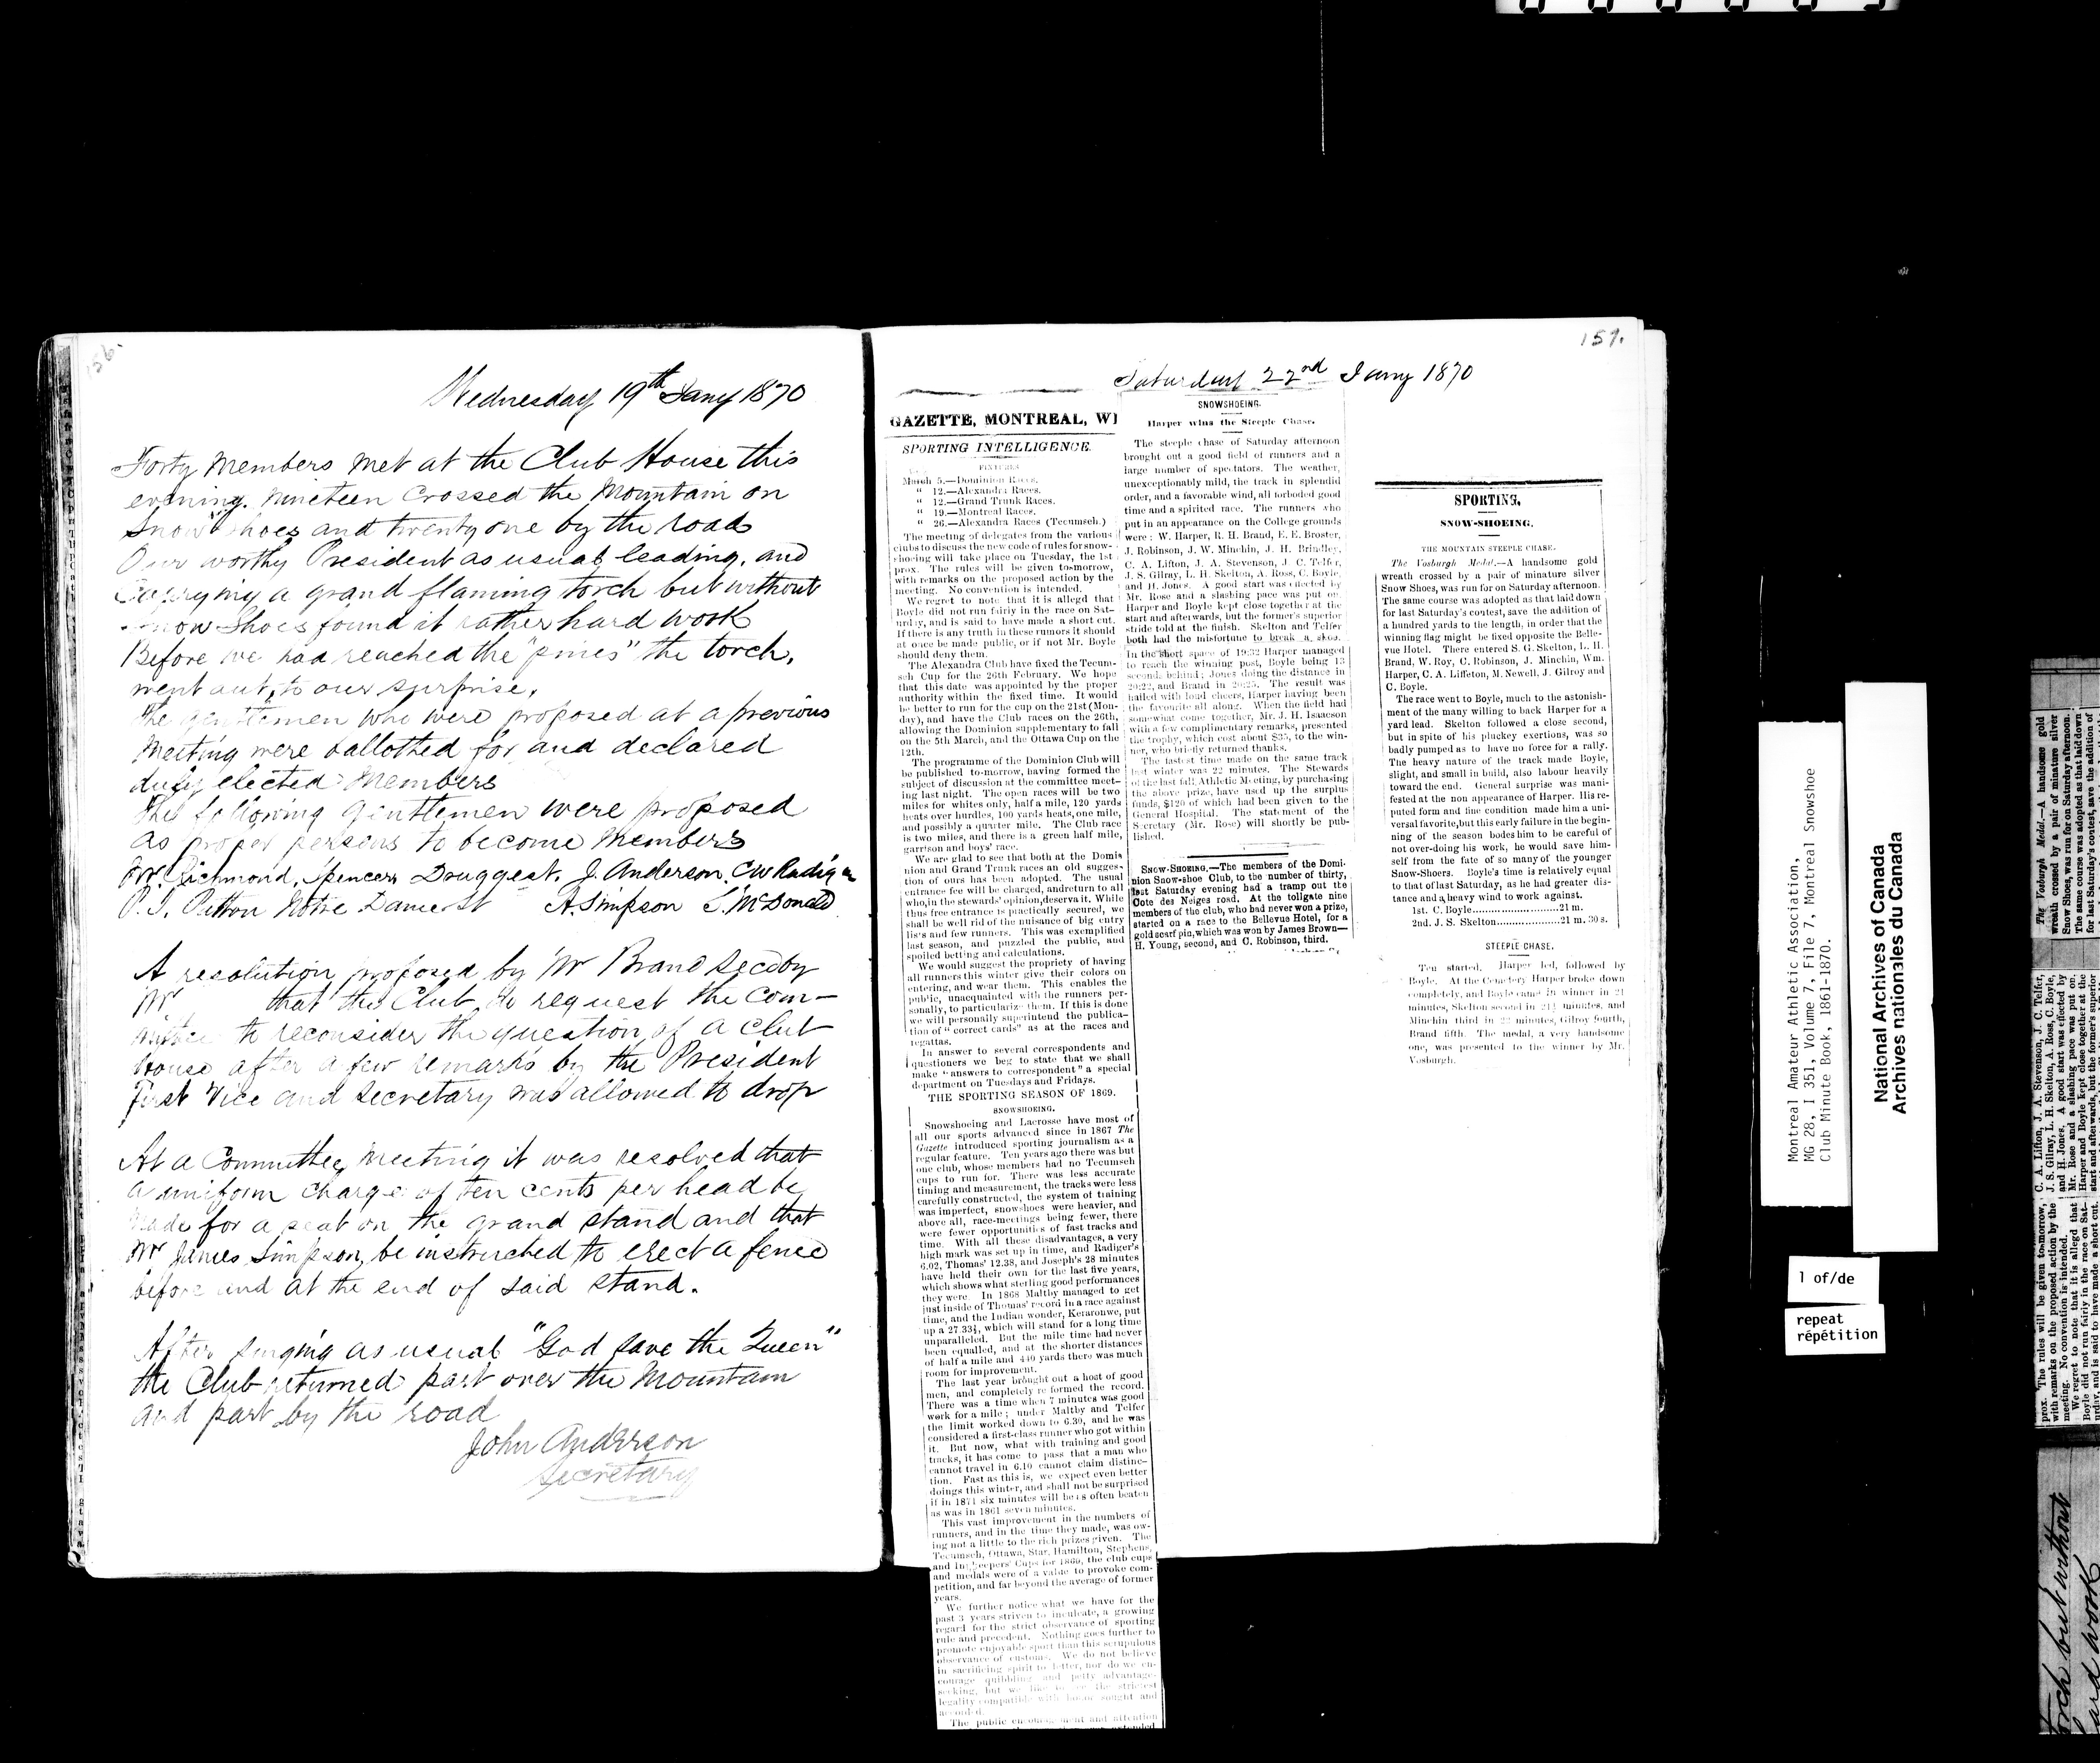 156.
Wednesday 19th Jany 1870
Forty Members met at the Club House this
evening. Nineteen Crossed the Mountain on
Snow Shoes and twenty one by the road
Our worthy President as usual leading, and
Carrying a grand flaming torch but without
Snow Shoes found it rather hard work
Before we had reached the "pines" the torch,
went out, to our surprise.
The gentlemen who were proposed at a previous
Meeting were ballotted for and declared
duly elected Members
The following gentlemen were proposed
as proper persons to become Members
Mr. Richmond, Spencers Druggest, J. Anderson, CW Radiger
P. J. Patton Notre Dame St A. Simpson L. McDonald
A resolution proposed by Mr Brand Secd by
Mr that the Club, do request the Com-
mittee to reconsider the question of a Club
House after a few remarks by the President
First Vice and Secretary was allowed to drop
At a Committee Meeting it was resolved that
a uniform charge of ten cents per head be
made for a seat on the grand stand and that
Mr James Simpson, be instructed to erect a fence
before and at the end of said stand.
After singing as usual "God save the Queen"
the Club returned part over the Mountain
and part by the road
John Anderson
Secretary
157.
Saturday 22nd Jany 1870
GAZETTE, MONTREAL, WE
SPORTING INTELLIGENCE.
FIXTURES
March 5.—Dominion Races.
" 12.—Alexandra Races.
" 12.—Grand Trunk Races.
" 19.—Montreal Races.
" 26.—Alexandra Races (Tecumseh.)
The meeting of delegates from the various
clubs to discuss the new code of rules for snow-
shoeing will take place on Tuesday, the 1st
prox. The rules will be given to-morrow,
with remarks on the proposed action by the
meeting. No convention is intended.
We regret to note that it is allegd that
Boyle did not run fairly in the race on Sat-
urday, and is said to have made a short cut.
If there is any truth in these rumors it should
at once be made public, or if not Mr. Boyle
should deny them.
The Alexandra Club have fixed the Tecum-
seh Cup for the 26th February. We hope
that this date was appointed by the proper
authority within the fixed time. It would
be better to run for the cup on the 21st (Mon-
day), and have the Club races on the 26th,
allowing the Dominion supplementary to fall
on the 5th March, and the Ottawa Cup on the
12th.
The programme of the Dominion Club will
be published to-morrow, having formed the
subject of discussion at the committee meet-
ing last night. The open races will be two
miles for whites only, half a mile, 120 yards
heats over hurdles, 100 yards heats, one mile,
and possibly a quarter mile. The Club race
is two miles, and there is a green half mile,
garrison and boys' race.
We are glad to see that both at the Domi-
nion and Grand Trunk races an old sugges-
tion of ours has been adopted. The usual
entrance fee will be charged, andreturn to all
who, in the stewards' opinion, deserva it. While
thus free entrance is practically secured, we
shall be well rid of the nuisance of big entry
lists and few runners. This was exemplified
last season, and puzzled the public, and
spoiled betting and calculations.
We would suggest the propriety of having
all runners this winter give their colors on
entering, and wear them. This enables the
public, unacquainted with the runners per-
sonally, to particularize them. If this is done
we will personally superintend the publica-
tion of "correct cards" as at the races and
regattas.
In answer to several correspondents and
questioners we beg to state that we shall
make "answers to correspondent" a special
department on Tuesdays and Fridays.
THE SPORTING SEASON OF 1869.
SNOWSHOEING.
Snowshoeing and Lacrosse have most of
all our sports advanced since in 1867 The
Gazette introduced sporting journalism as a
regular feature. Ten years ago there was but
one club, whose members had no Tecumseh
cups to run for. There was less accurate
timing and measurement, the tracks were less
carefully constructed, the system of training
was imperfect, snowshoes were heavier, and
above all, race-meetings being fewer, there
were fewer opportunities of fast tracks and
time. With all these disadvantages, a very
high mark was set up in time, and Radiger's
6.02, Thomas' 12.38, and Joseph's 28 minutes
have held their own for the last five years,
which shows what sterling good performances
they were. In 1868 Maltby managed to get
just inside of Thomas' record in a race against
time, and the Indian wonder, Keraronwe, put
up a 27.33½, which will stand for a long time
unparalleled. But the mile time had never
been equalled, and at the shorter distances
of half a mile and 440 yards there was much
room for improvement.
The last year brought out a host of good
men, and completely re formed the record.
There was a time when 7 minutes was good
work for a mile; under Maltby and Telfer
the limit worked down to 6.30, and he was
considered a first-class runner who got within
it. But now, what with training and good
tracks, it has come to pass that a man who
cannot travel in 6.10 cannot claim distinc-
tion. Fast as this is, we expect even better
doings this winter, and shall not be surprised
if in 1871 six minutes will be as often beaten
as was in 1861 seven minutes.
This vast improvement in the numbers of
runners, and in the time they made, was ow-
ing not a little to the rich prizes given. The
Tecumseh, Ottawa, Star, Hamilton, Stephens,
and Innkeepers' Cups for 1869, the club cups
and medals were of a value to provoke com-
petition, and far beyond the average of former
years.
We further notice what we have for the
past 3 years striven to inculcate, a growing
regard for the strict observance of sporting
rule and precedent. Nothing goes further to
promote enjoyable sport than this scrupulous
observance of customs. We do not believe
in sacrificing spirit to letter, nor do we en-
courage quibbling and petty advantage-
seeking, but we like to see the strictest
legality compatible with honor sought and
accorded.
The public encouragement and attention
SNOWSHOEING.
Harper wins the Steeple Chase.
The steeple chase of Saturday afternoon
brought out a good field of runners and a
large number of spectators. The weather,
unexceptionably mild, the track in splendid
order, and a favorable wind, all forboded good
time and a spirited race. The runners who
put in an appearance on the College grounds
were: W. Harper, R. H. Brand, E. E. Broster,
J. Robinson, J. W. Minchin, J. H. Brindley,
C. A. Lifton, J. A. Stevenson, J. C. Telfer,
J. S. Gilray, L. H. Skelton, A. Ross, C. Boyle,
and H. Jones. A good start was effected by
Mr. Rose and a slashing pace was put on.
Harper and Boyle kept close together at the
start and afterwards, but the former's superior
stride told at the finish. Skelton and Telfer
both had the misfortune to break a shoe.
In the short space of 19:32 Harper managed
to reach the winning post, Boyle being 13
second. behind; Jones doing the distance in
20:22, and Brand in 20:25. The result was
hailed with loud cheers, Harper having been
the favorite all along. When the field had
somewhat come together, Mr. J. H. Isaacson
with a few complimentary remarks, presented
the trophy, which cost about $35, to the win-
ner, who briefly returned thanks.
The fastest time made on the same track
last winter was 22 minutes. The Stewards
of the last fall Athletic Meeting, by purchasing
the above prize, have used up the surplus
funds, $120 of which had been given to the
General Hospital. The statement of the
Secretary (Mr. Rose) will shortly be pub-
lished.
SNOW-SHOEING.—The members of the Domi-
nion Snow-shoe Club, to the number of thirty,
last Saturday evening had a tramp out the
Cote des Neiges road. At the tollgate nine
members of the club, who had never won a prize,
started on a race to the Bellevue Hotel, for a
gold scarf pin, which was won by James Brown—
H. Young, second, and C. Robinson, third.
SPORTING.
SNOW-SHOEING.
THE MOUNTAIN STEEPLE CHASE.
The Vosburgh Medal.—A handsome gold
wreath crossed by a pair of minature silver
Snow Shoes, was run for on Saturday afternoon.
The same course was adopted as that laid down
for last Saturday's contest, save the addition of
a hundred yards to the length, in order that the
winning flag might be fixed opposite the Belle-
vue Hotel. There entered S. G. Skelton, L. H.
Brand, W. Roy, C. Robinson, J. Minchin, Wm.
Harper, C. A. Liffeton, M. Newell, J. Gilroy and
C. Boyle.
The race went to Boyle, much to the astonish-
ment of the many willing to back Harper for a
yard lead. Skelton followed a close second,
but in spite of his pluckey exertions, was so
badly pumped as to have no force for a rally.
The heavy nature of the track made Boyle,
slight, and small in build, also labour heavily
toward the end. General surprise was mani-
fested at the non appearance of Harper. His re-
puted form and fine condition made him a uni-
versal favorite, but this early failure in the begin-
ning of the season bodes him to be careful of
not over-doing his work, he would save him-
self from the fate of so many of the younger
Snow-Shoers. Boyle's time is relatively equal
to that of last Saturday, as he had greater dis-
tance and a heavy wind to work against.
1st. C. Boyle..........................21 m.
2nd. J. S. Skelton....................21 m. 30 s.
STEEPLE CHASE.
Ten started. Harper led, followed by
Boyle. At the Cemetery Harper broke down
completely, and Boyle came in winner in 21
minutes, Skelton second in 21½ minutes, and
Minchin third in 22 minutes, Gilroy fourth,
Brand fifth. The medal, a very handsome
one, was presented to the winner by Mr.
Vosburgh.
Montreal Amateur Athletic Association,
MG 28, I 351, Volume 7, File 7, Montreal Snowshoe
Club Minute Book, 1861-1870.
National Archives of Canada
Archives nationales du Canada
1 of/de
repeat
répétition
The Vosburgh Medal.—A handsome gold
wreath crossed by a pair of minature silver
Snow Shoes, was run for on Saturday afternoon.
The same course was adopted as that laid down
for last Saturday's contest, save the addition of
C. A. Lifton, J. A. Stevenson, J. C. Telfer,
J. S. Gilray, L. H. Skelton, A. Ross, C. Boyle,
and H. Jones. A good start was effected by
Mr. Rose and a slashing pace was put on.
Harper and Boyle kept close together at the
start and afterwards, but the former's superior
prox. The rules will be given to-morrow,
with remarks on the proposed action by the
meeting. No convention is intended.
We regret to note that it is allegd that
Boyle did not run fairly in the race on Sat-
urday, and is said to have made a short cut.
torch but without
hard work